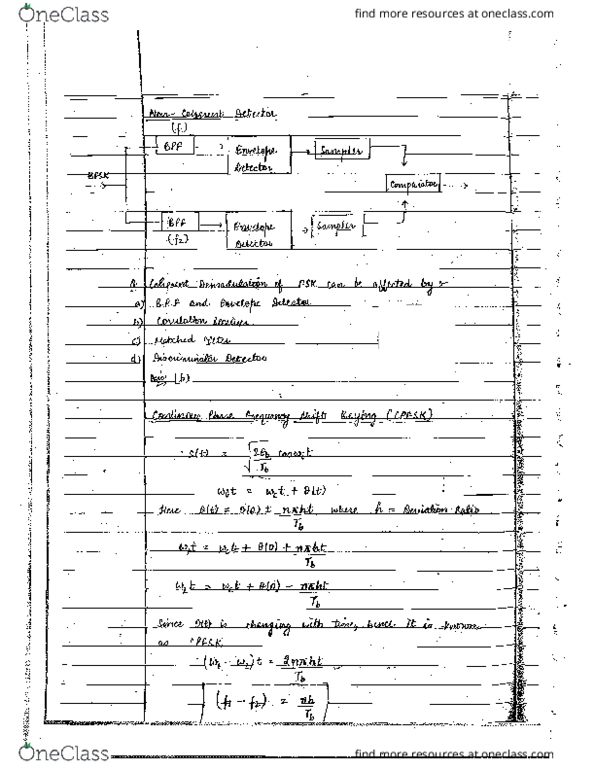 OneClass
find more resources at oneclass.com
Non-Coherent Detector
(f₁)
BPF
Envelope Detector
Sampler
BFSK
Comparator
BPF
(f₂)
Envelope Detector
Sampler
Q. Coherent Demodulation of FSK can be affected by :-
a) B.P.F and Envelope Detector
b) Correlation Receiver
c) Matched Filter
d) Discriminator Detector
(b)
Continuous Phase Frequency Shift Keying (CPFSK)
S(t) = √(2Eb/Tb) cos ωct
t = ωct + θ(t)
Here θ(t) = θ(0) ± nπht/Tb where h = Deviation Ratio
ω₁t = ωct + θ(0) + nπht/Tb
ω₂t = ωct + θ(0) - nπht/Tb
Since θ(t) is changing with time, hence it is known
as CPFSK
(ω₁ - ω₂)t = 2nπht/Tb
(f₁ - f₂) = nh/Tb
OneClass
find more resources at oneclass.com